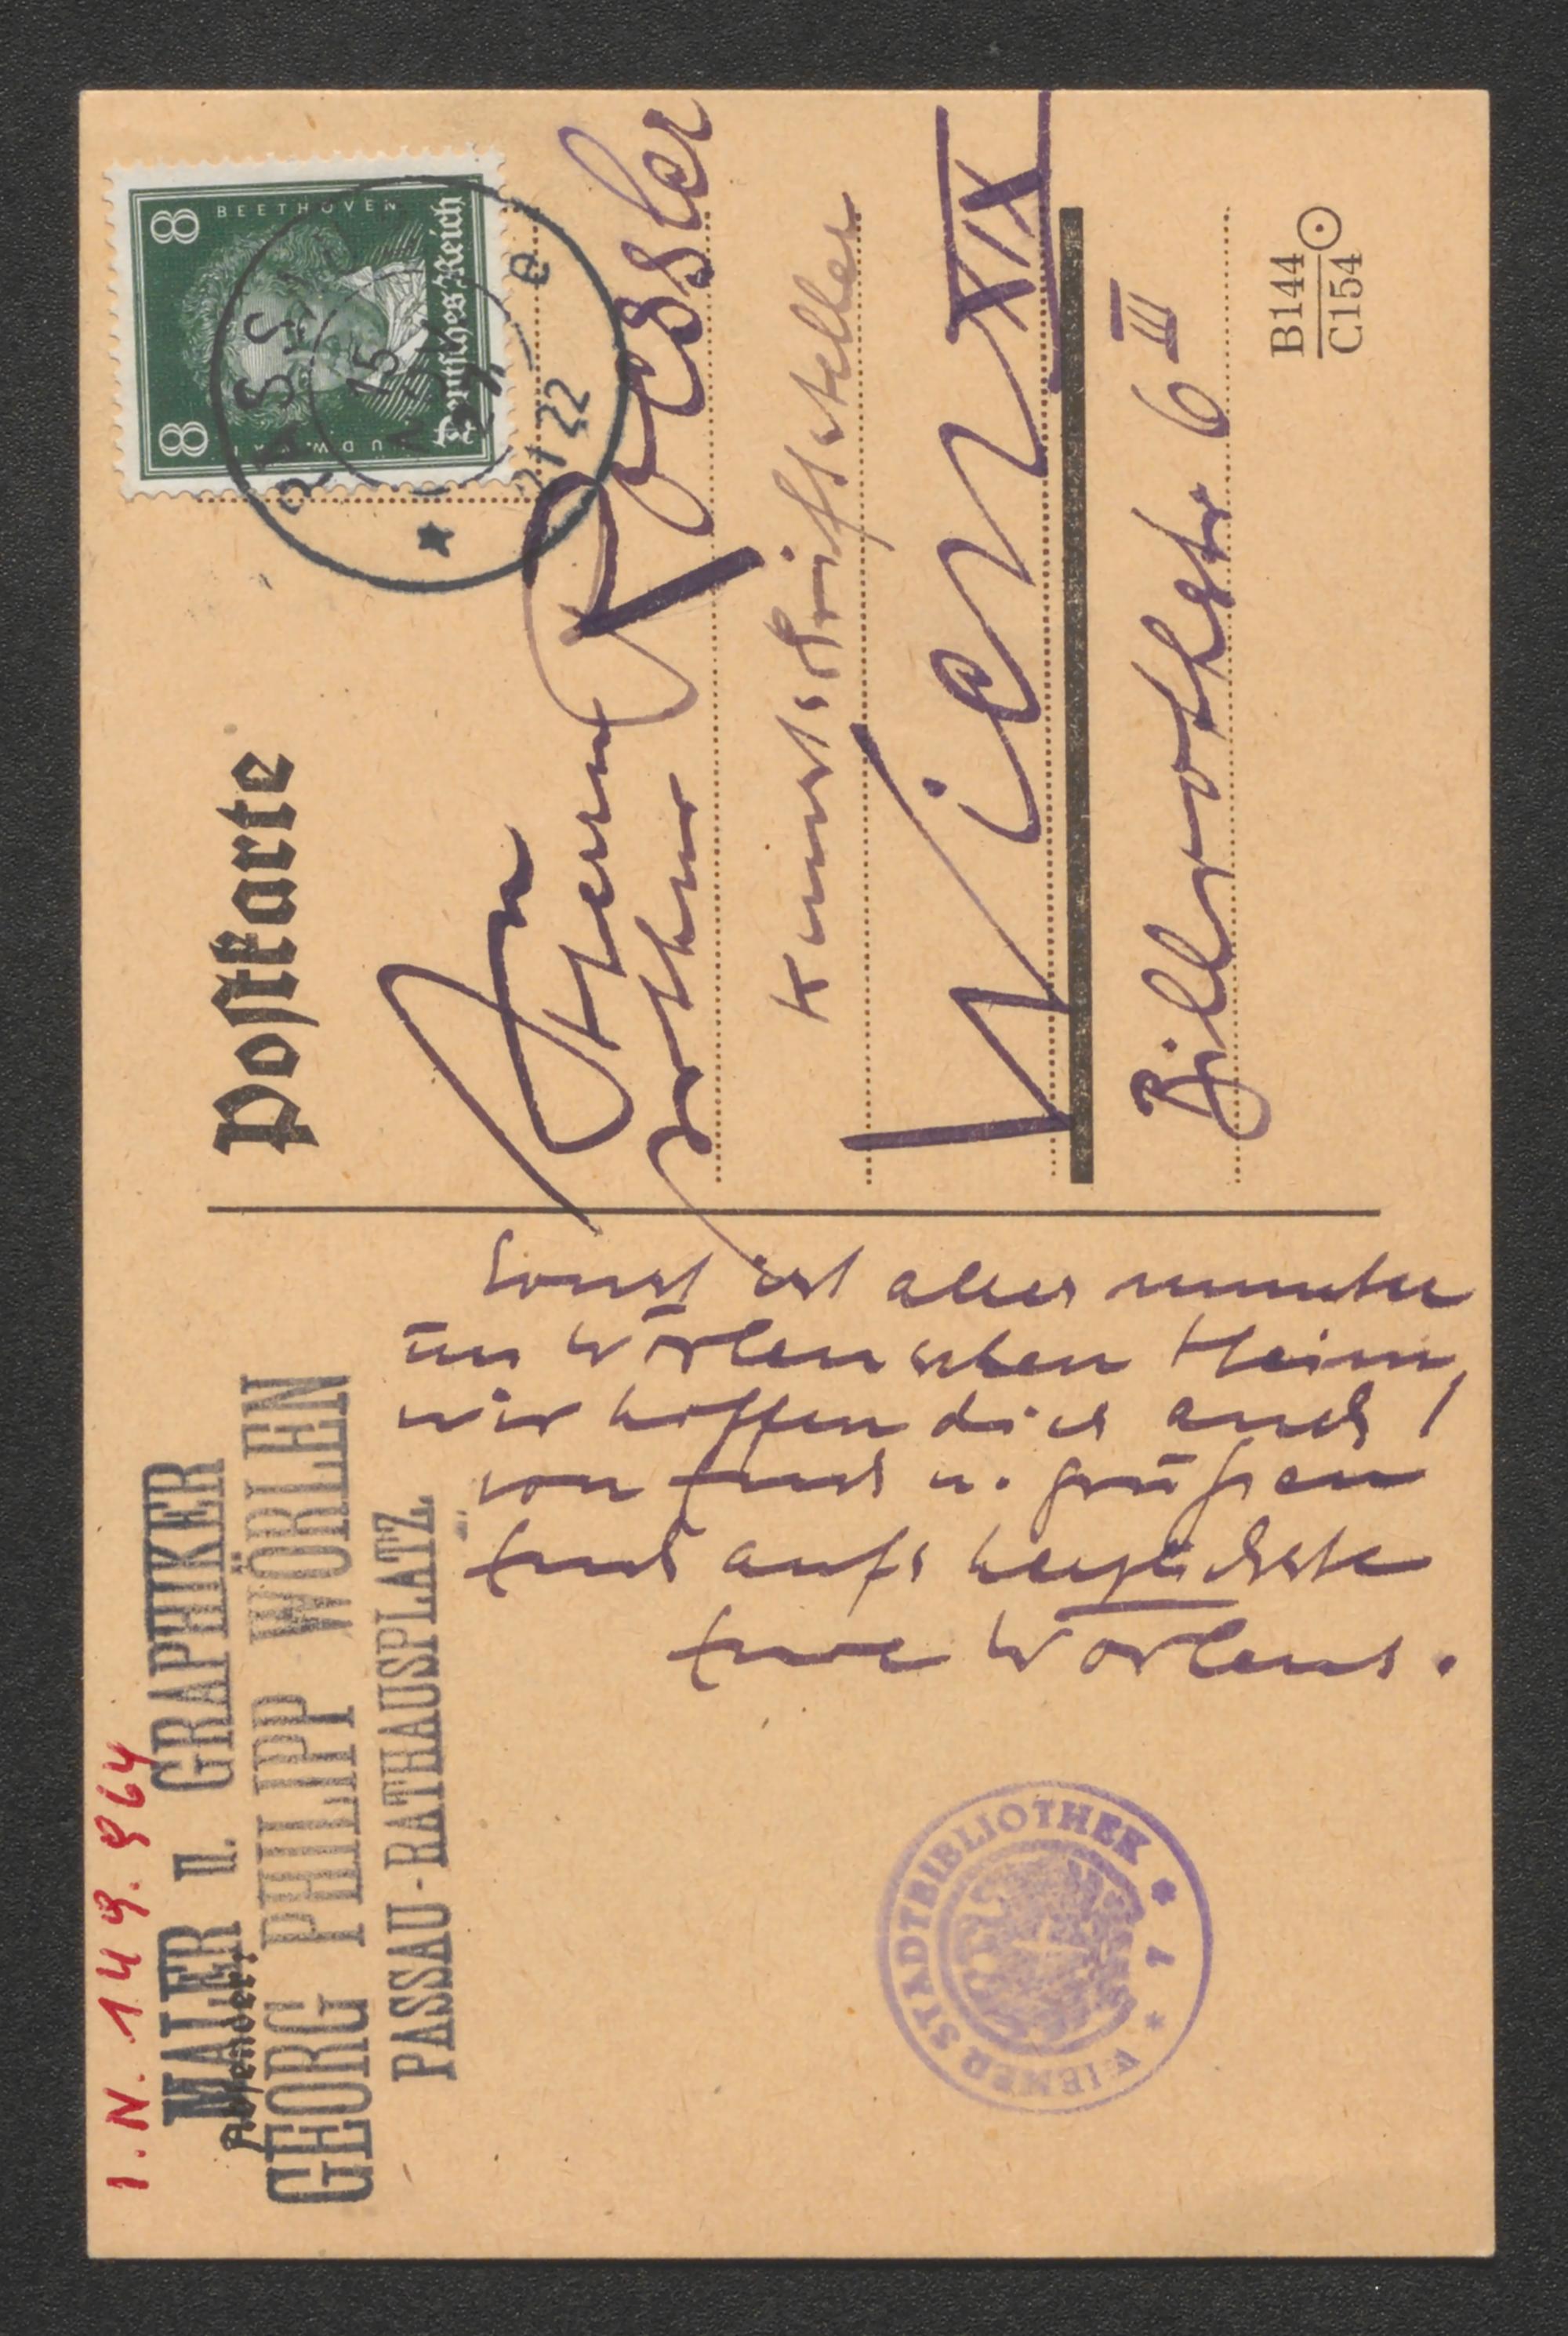 I. N. 149.964
MALER u. GRAPHIKER
Absender:
GEORG PHILIPP WÖRLEN
PASSAU-RATHAUSPLATZ
Sonst ist alles munter
im Wörlenschen Heim,
wir hoffen dies auch
von Euch u. grüßen
Euch aufs herzlichste
Eure Wörlens.
WIENER STADTBIBLIOTHEK * 1 *
Postkarte
8 BEETHOVEN 8
Deutsches Reich
PASSAU
15
21-22
An
Herrn
Arthur Roessler
Kunstschriftsteller
Wien XIX
Billrothstr 6 III
B144
C154